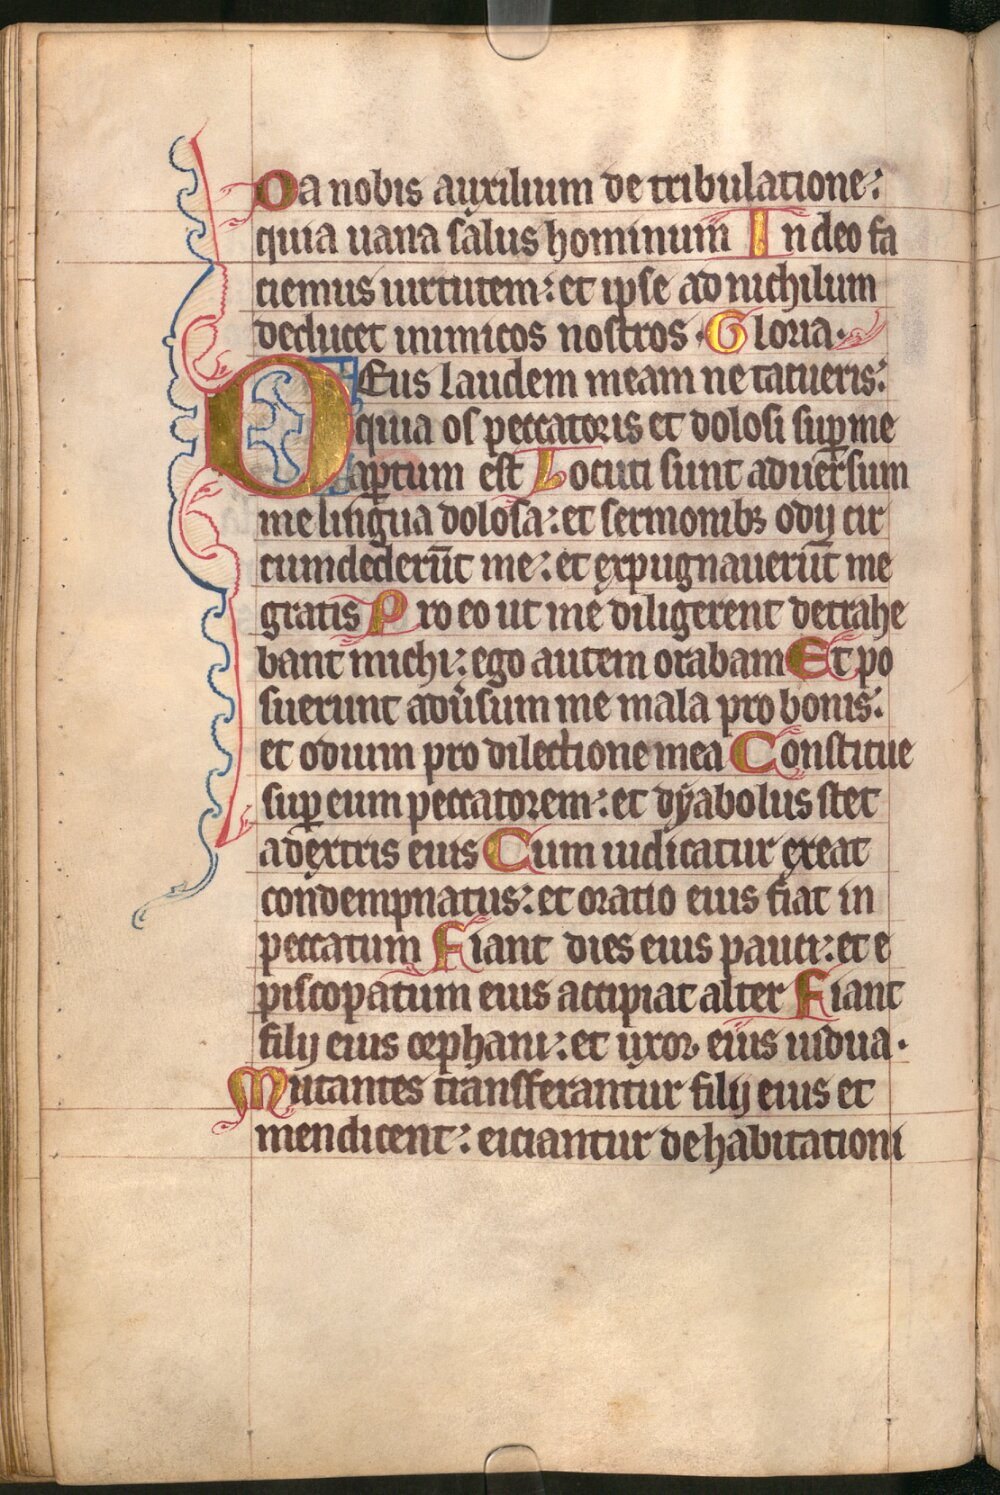 Da nobis auxilium de tribulatione:
quia uana salus hominum In deo fa
ciemus uirtutem: et ipse ad nichilum
deducet inimicos nostros · Gloria ·
DEus laudem meam ne tacueris:
quia os peccatoris et dolosi sup̱ me
ap̱tum est Locuti sunt aduersum
me lingua dolosa: et sermonibꝫ odij cir
cumdederūt me: et expugnauerūt me
gratis Pro eo ut me diligerent detrahe
bant michi: ego autem orabam Et po
suerunt adu̓sum me mala pro bonis:
et odium pro dilectione mea Constitue
sup̱ eum peccatorem: et dyabolus stet
a dextris eius Cum iudicatur exeat
condempnatus: et oratio eius fiat in
peccatum Fiant dies eius pauci: et e
piscopatum eius accipiat alter Fiant
filij eius orphani: et uxor eius uidua ·
Nutantes transferantur filij eius et
mendicent: eiciantur de habitationi